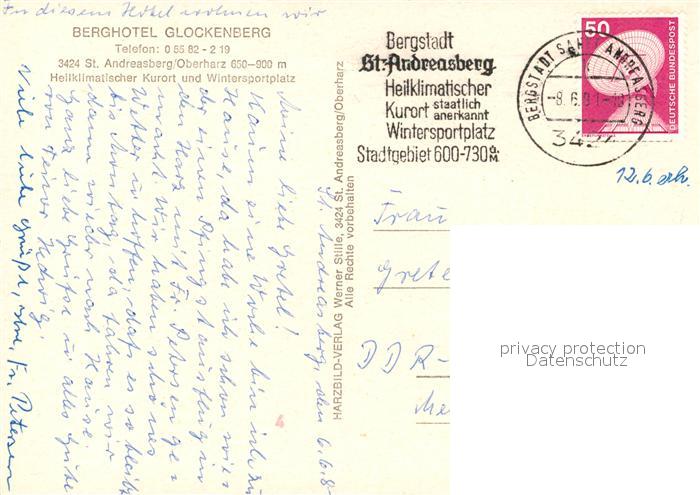 In diesem Hotel wohnen wir
BERGHOTEL GLOCKENBERG
Telefon: 0 55 82 - 2 19
3424 St. Andreasberg/Oberharz 650—900 m
Heilklimatischer Kurort und Wintersportplatz
St. Andreasberg, den 6.6.8
Meine liebe Gretel!
Kaum eine Woche bin ich zu
Hause, da habe ich schon wie-
der einen Pfingstausflug in
den Harz mit Fr. Petersen ge-
macht. Wir haben schönes
Wetter u. hoffen, daß es so bleibt
bis Montag, da fahren wir
dann wieder nach Hause.
Ganz liebe Grüße u. alles Gute
von Deiner Hedwig.
Viele liebe Grüße, Fr. Petersen
HARZBILD-VERLAG Werner Stille, 3424 St. Andreasberg/Oberharz
Alle Rechte vorbehalten
Bergstadt
St. Andreasberg
Heilklimatischer
Kurort staatlich anerkannt
Wintersportplatz
Stadtgebiet 600-730 ü.M.
BERGSTADT SANKT ANDREASBERG
-8.6.81-18
3424
50
DEUTSCHE BUNDESPOST
12.6. erh.
Frau
Grete
DDR-
4
privacy protection
Datenschutz